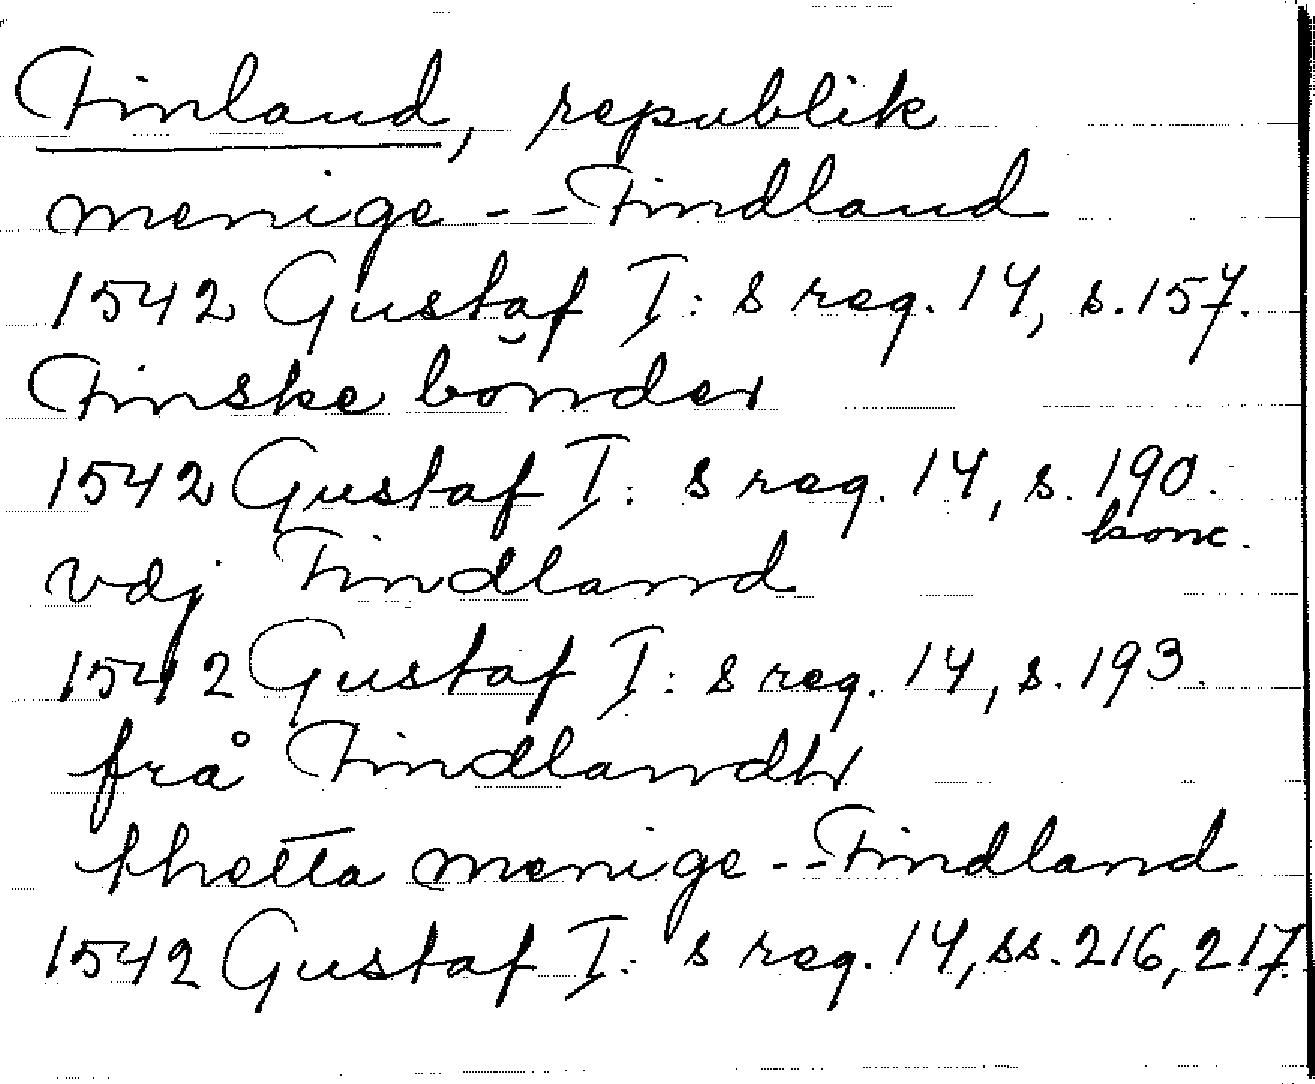 Finland, republik
menige -- Findland
1542 Gustaf I: s reg. 14, s. 157.
Finske bönder
1542 Gustaf I: s reg. 14, s. 190.
konc.
vdj Findland
1542 Gustaf I: s reg. 14, s. 193.
frå Findlandh
thetta menige -- Findland
1542 Gustaf I: s reg. 14, ss. 216, 217.